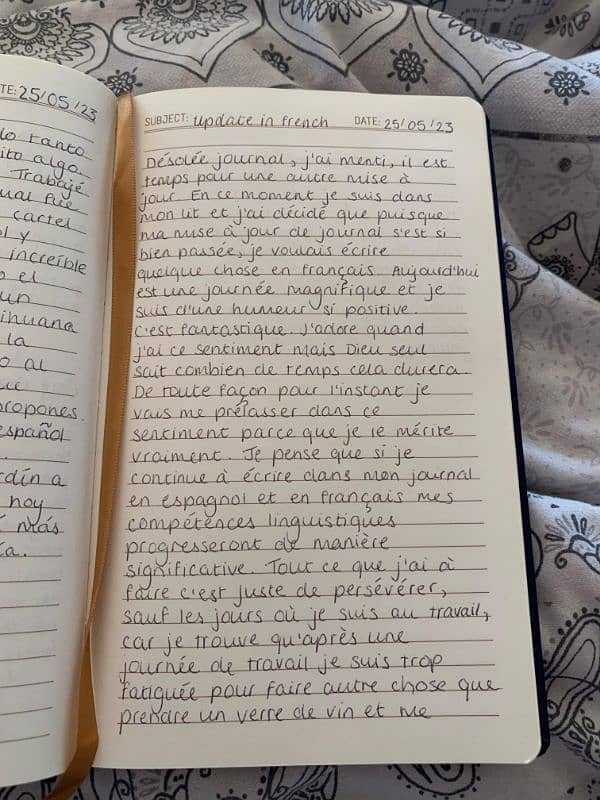 TE: 25/05/23
lo tanto
ito algo.
Trabajé
ual fue
cartel
l y
increíble
o el
un
ihuana
la
o al
ue
propones.
español
rdín a
hoy
más
ía.
SUBJECT: Update in French DATE: 25/05/23
Désolée journal, j'ai menti, il est
temps pour une autre mise à
jour. En ce moment je suis dans
mon lit et j'ai décidé que puisque
ma mise à jour de journal s'est si
bien passée, je voulais écrire
quelque chose en français. Aujourd'hui
est une journée magnifique et je
suis d'une humeur si positive.
C'est fantastique. J'adore quand
j'ai ce sentiment mais Dieu seul
sait combien de temps cela durera.
De toute façon pour l'instant je
vais me prélasser dans ce
sentiment parce que je le mérite
vraiment. Je pense que si je
continue à écrire dans mon journal
en espagnol et en français mes
compétences linguistiques
progresseront de manière
significative. Tout ce que j'ai à
faire c'est juste de persévérer,
sauf les jours où je suis au travail,
car je trouve qu'après une
journée de travail je suis trop
fatiguée pour faire autre chose que
prendre un verre de vin et me